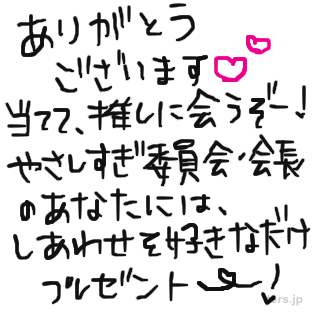 ありがとう
ございます
当てて、推しに会うぞー!
やさしすぎ委員会・会長
のあなたには、
しあわせを好きなだけ
プレゼント!